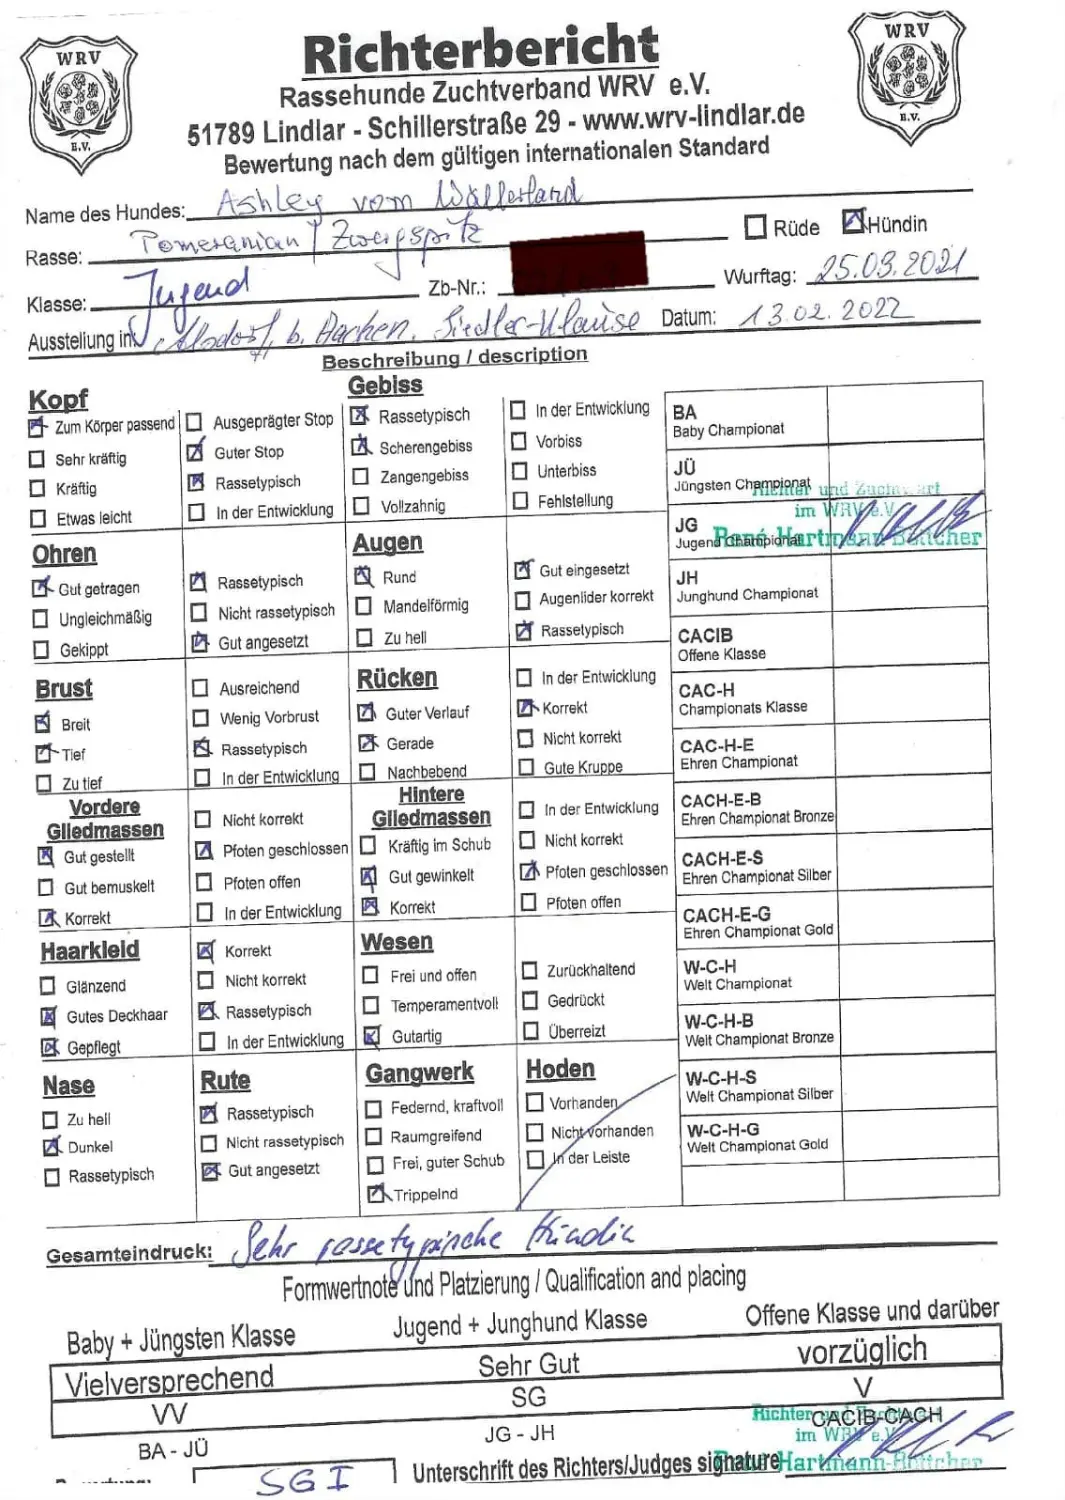 WRV
E.V.
Richterbericht
WRV
E.V.
Rassehunde Zuchtverband WRV e.V.
51789 Lindlar - Schillerstraße 29 - www.wrv-lindlar.de
Bewertung nach dem gültigen internationalen Standard
Name des Hundes: Ashley vom Wällerland
Rasse: Pomeranian / Zwergspitz
Rüde Hündin
Klasse: Jugend Zb-Nr.: Wurftag: 25.03.2021
Ausstellung in: Alsdorf, b. Aachen, Siedler-Klause Datum: 13.02.2022
Beschreibung / description
Kopf
Zum Körper passend Ausgeprägter Stop
Sehr kräftig Guter Stop
Kräftig Rassetypisch
Etwas leicht In der Entwicklung
Gebiss
Rassetypisch In der Entwicklung
Scherengebiss Vorbiss
Zangengebiss Unterbiss
Vollzahnig Fehlstellung
Ohren
Gut getragen Rassetypisch
Ungleichmäßig Nicht rassetypisch
Gekippt Gut angesetzt
Augen
Rund Gut eingesetzt
Mandelförmig Augenlider korrekt
Zu hell Rassetypisch
Brust
Ausreichend
Breit Wenig Vorbrust
Tief Rassetypisch
Zu tief In der Entwicklung
Rücken
In der Entwicklung
Guter Verlauf Korrekt
Gerade Nicht korrekt
Nachbebend Gute Kruppe
Vordere
Gliedmassen
Nicht korrekt
Gut gestellt Pfoten geschlossen
Gut bemuskelt Pfoten offen
Korrekt In der Entwicklung
Hintere
Gliedmassen
In der Entwicklung
Kräftig im Schub Nicht korrekt
Gut gewinkelt Pfoten geschlossen
Korrekt Pfoten offen
Haarkleid
Korrekt
Glänzend Nicht korrekt
Gutes Deckhaar Rassetypisch
Gepflegt In der Entwicklung
Wesen
Frei und offen Zurückhaltend
Temperamentvoll Gedrückt
Gutartig Überreizt
Nase
Zu hell
Dunkel
Rassetypisch
Rute
Rassetypisch
Nicht rassetypisch
Gut angesetzt
Gangwerk
Federnd, kraftvoll
Raumgreifend
Frei, guter Schub
Trippelnd
Hoden
Vorhanden
Nicht vorhanden
In der Leiste
BA
Baby Championat
JÜ
Jüngsten Championat
Richter und Zuchtwart
im WRV e.V.
René Hartmann-Böttcher
JG
Jugend Championat
JH
Junghund Championat
CACIB
Offene Klasse
CAC-H
Championats Klasse
CAC-H-E
Ehren Championat
CACH-E-B
Ehren Championat Bronze
CACH-E-S
Ehren Championat Silber
CACH-E-G
Ehren Championat Gold
W-C-H
Welt Championat
W-C-H-B
Welt Championat Bronze
W-C-H-S
Welt Championat Silber
W-C-H-G
Welt Championat Gold
Gesamteindruck: Sehr rassetypische Hündin
Formwertnote und Platzierung / Qualification and placing
Baby + Jüngsten Klasse Jugend + Junghund Klasse Offene Klasse und darüber
Vielversprechend Sehr Gut vorzüglich
VV SG V
BA - JÜ JG - JH CACIB-CACH
Richter und
im WRV e.V.
René Hartmann-Böttcher
SG I
Unterschrift des Richters/Judges signature